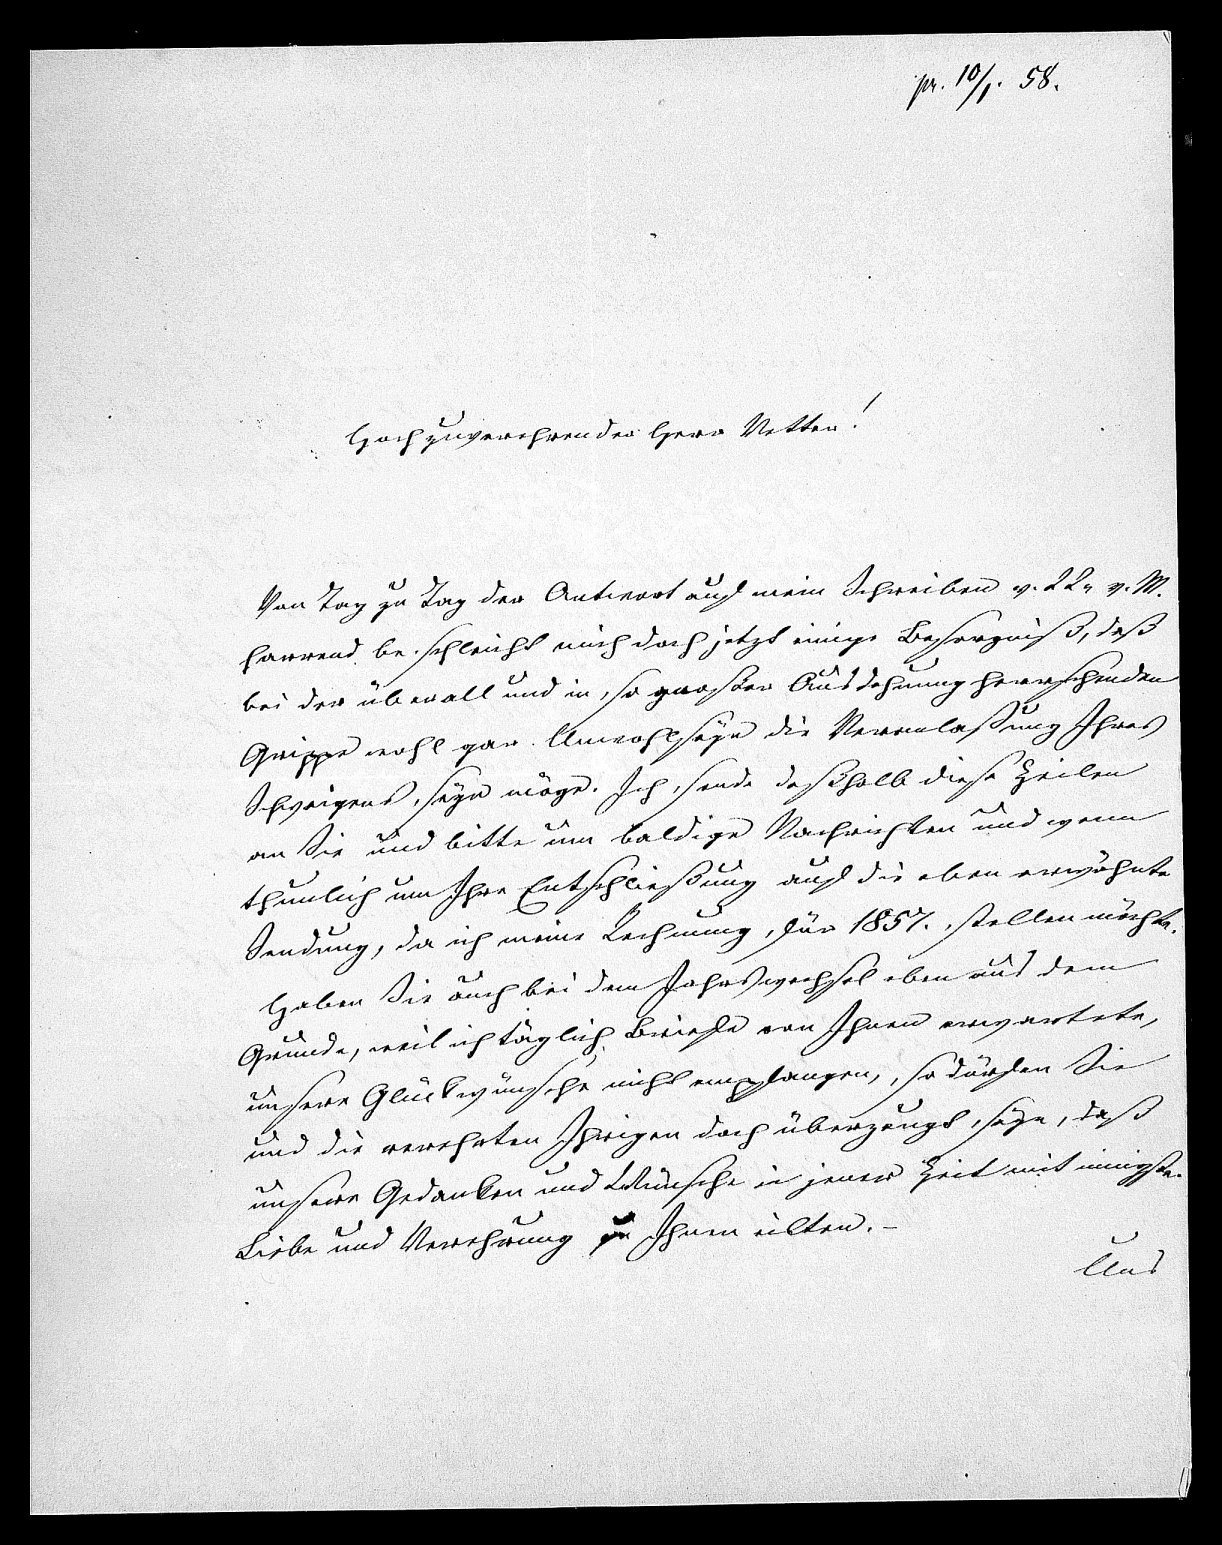 pr. 10/1. 58.
Hochzuverehrender Herr Vetter!
Von Tag zu Tag der Antwort auf mein Schreiben v. 22. v. M.
harrend beschleicht mich doch jetzt einige Besorgniß, daß
bei der überall und in so großer Ausdehnung herrschenden
Grippe wohl gar Unwohlseyn die Veranlaßung Ihres
Schweigens seyn möge. Ich sende deßhalb diese Zeilen
an Sie und bitte um baldige Nachrichten und wenn
thunlich um Ihre Entschließung auf die oben erwähnte
Sendung, da ich meine Rechnung für 1857. stellen möchte.
Haben Sie auch bei dem Jahreswechsel eben aus dem
Grunde, weil ich täglich Briefe von Ihnen erwartete,
unsere Glückwünsche nicht empfangen, so dürfen Sie
und die verehrten Ihrigen doch überzeugt seyn, daß
unsere Gedanken und Wünsche in jener Zeit mit innigster
Liebe und Verehrung zu Ihnen eilten. –
Uns